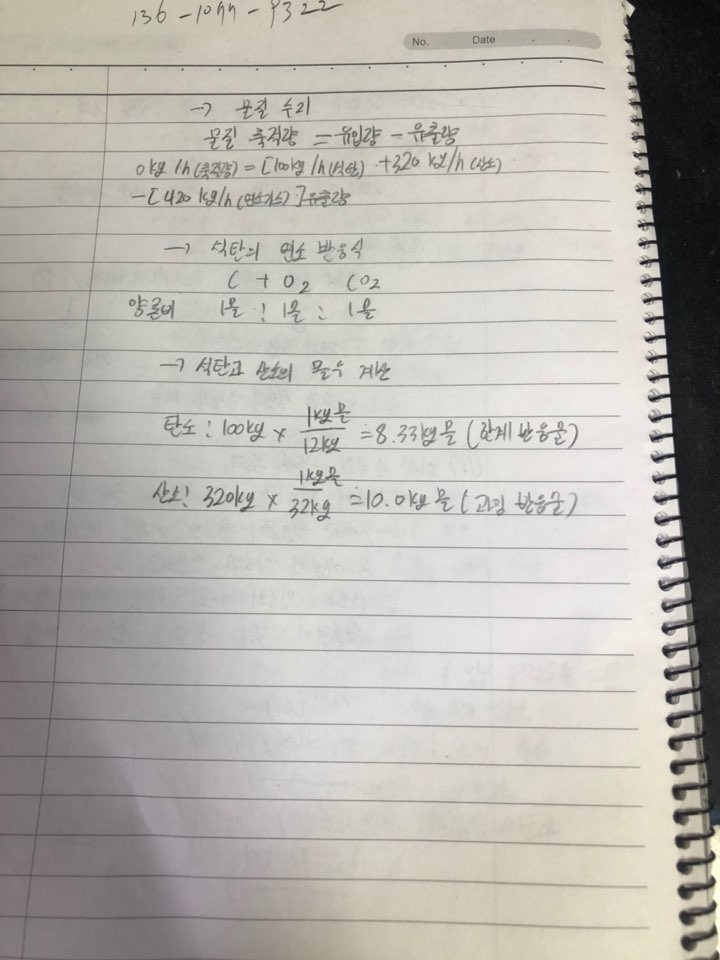 No. Date
→ 물질 수리
물질 축적량 = 유입량 - 유출량
0kg/h(축적량) = [100kg/h(석탄) + 320kg/h(산소)
-[420kg/h(연소가스)]유출량
→ 석탄의 연소 반응식
C + O2 CO2
양론비 1몰 : 1몰 : 1몰
→ 석탄과 산소의 몰수 계산
탄소: 100kg × 1kg몰/12kg = 8.33kg몰 (한계 반응물)
산소: 320kg × 1kg몰/32kg = 10.0kg몰 (과잉 반응물)